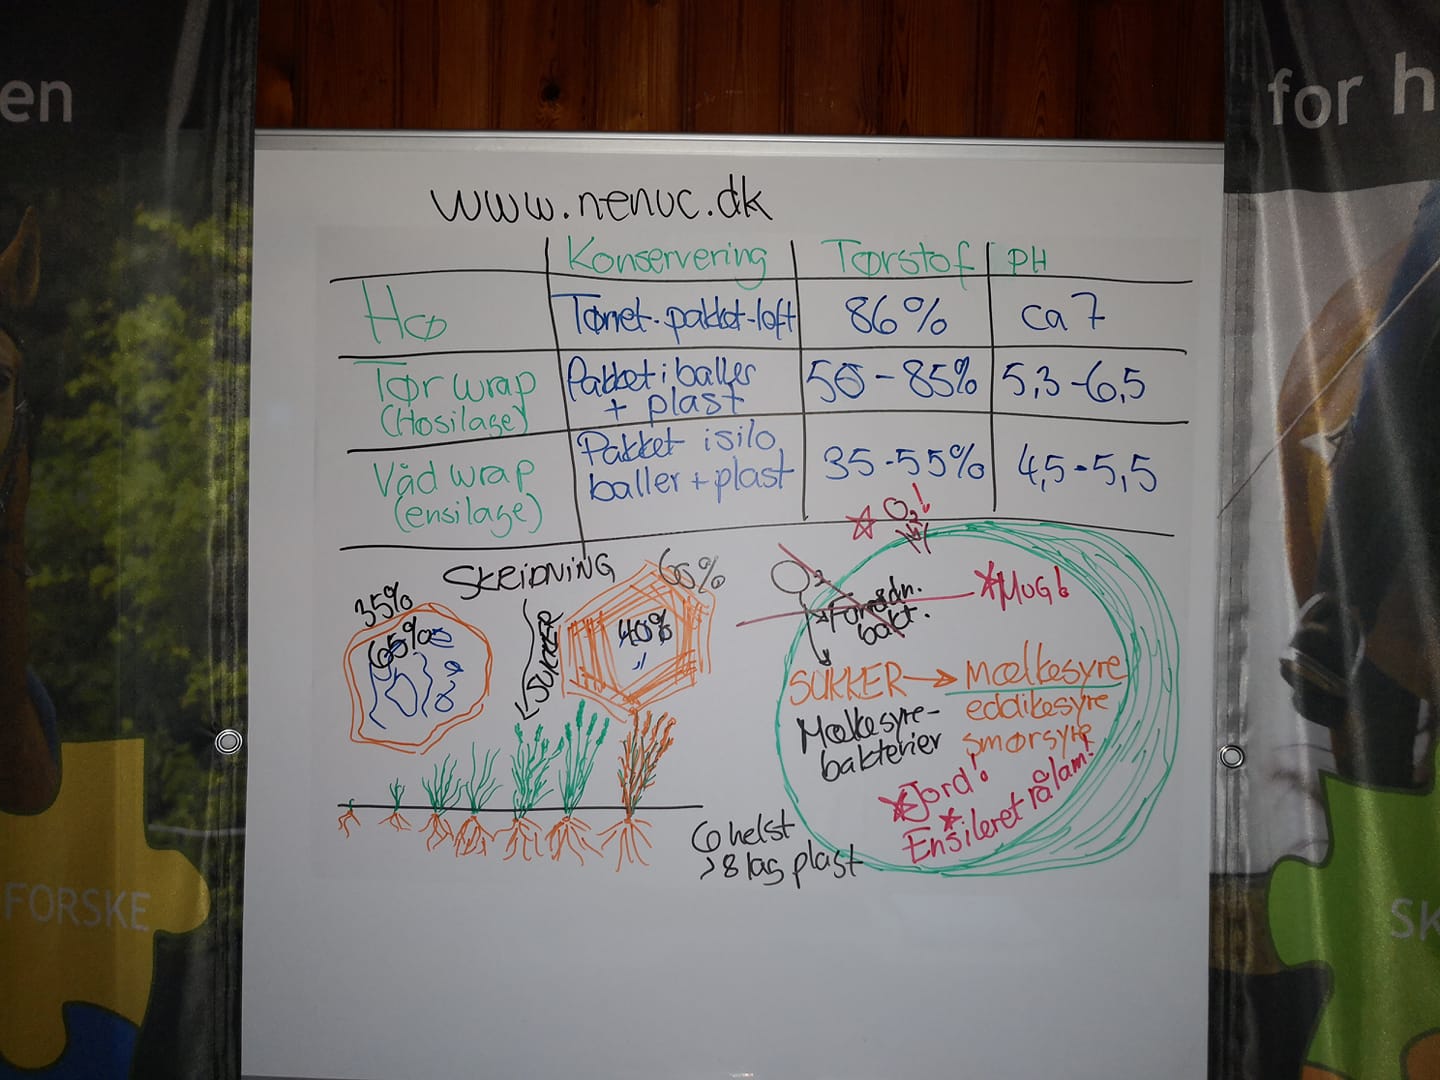 en
for h
www.nenuc.dk
Konservering Tørstof PH
Hø Tørret-pakket-loft 86% ca 7
Tør wrap (Høsilage) Pakket i baller + plast 50-85% 5,3-6,5
Våd wrap (ensilage) Pakket i silo baller + plast 35-55% 4,5-5,5
SKRIDNING
35%
65%
SUKKER
60%
40%
O2!
O2
bakt.
Mug
SUKKER → Mælkesyre
eddikesyre
smørsyre
Mælkesyre-
bakterier
Jord!
Ensileret rålam!
6 helst
>8 lag plast
FORSKE
SK